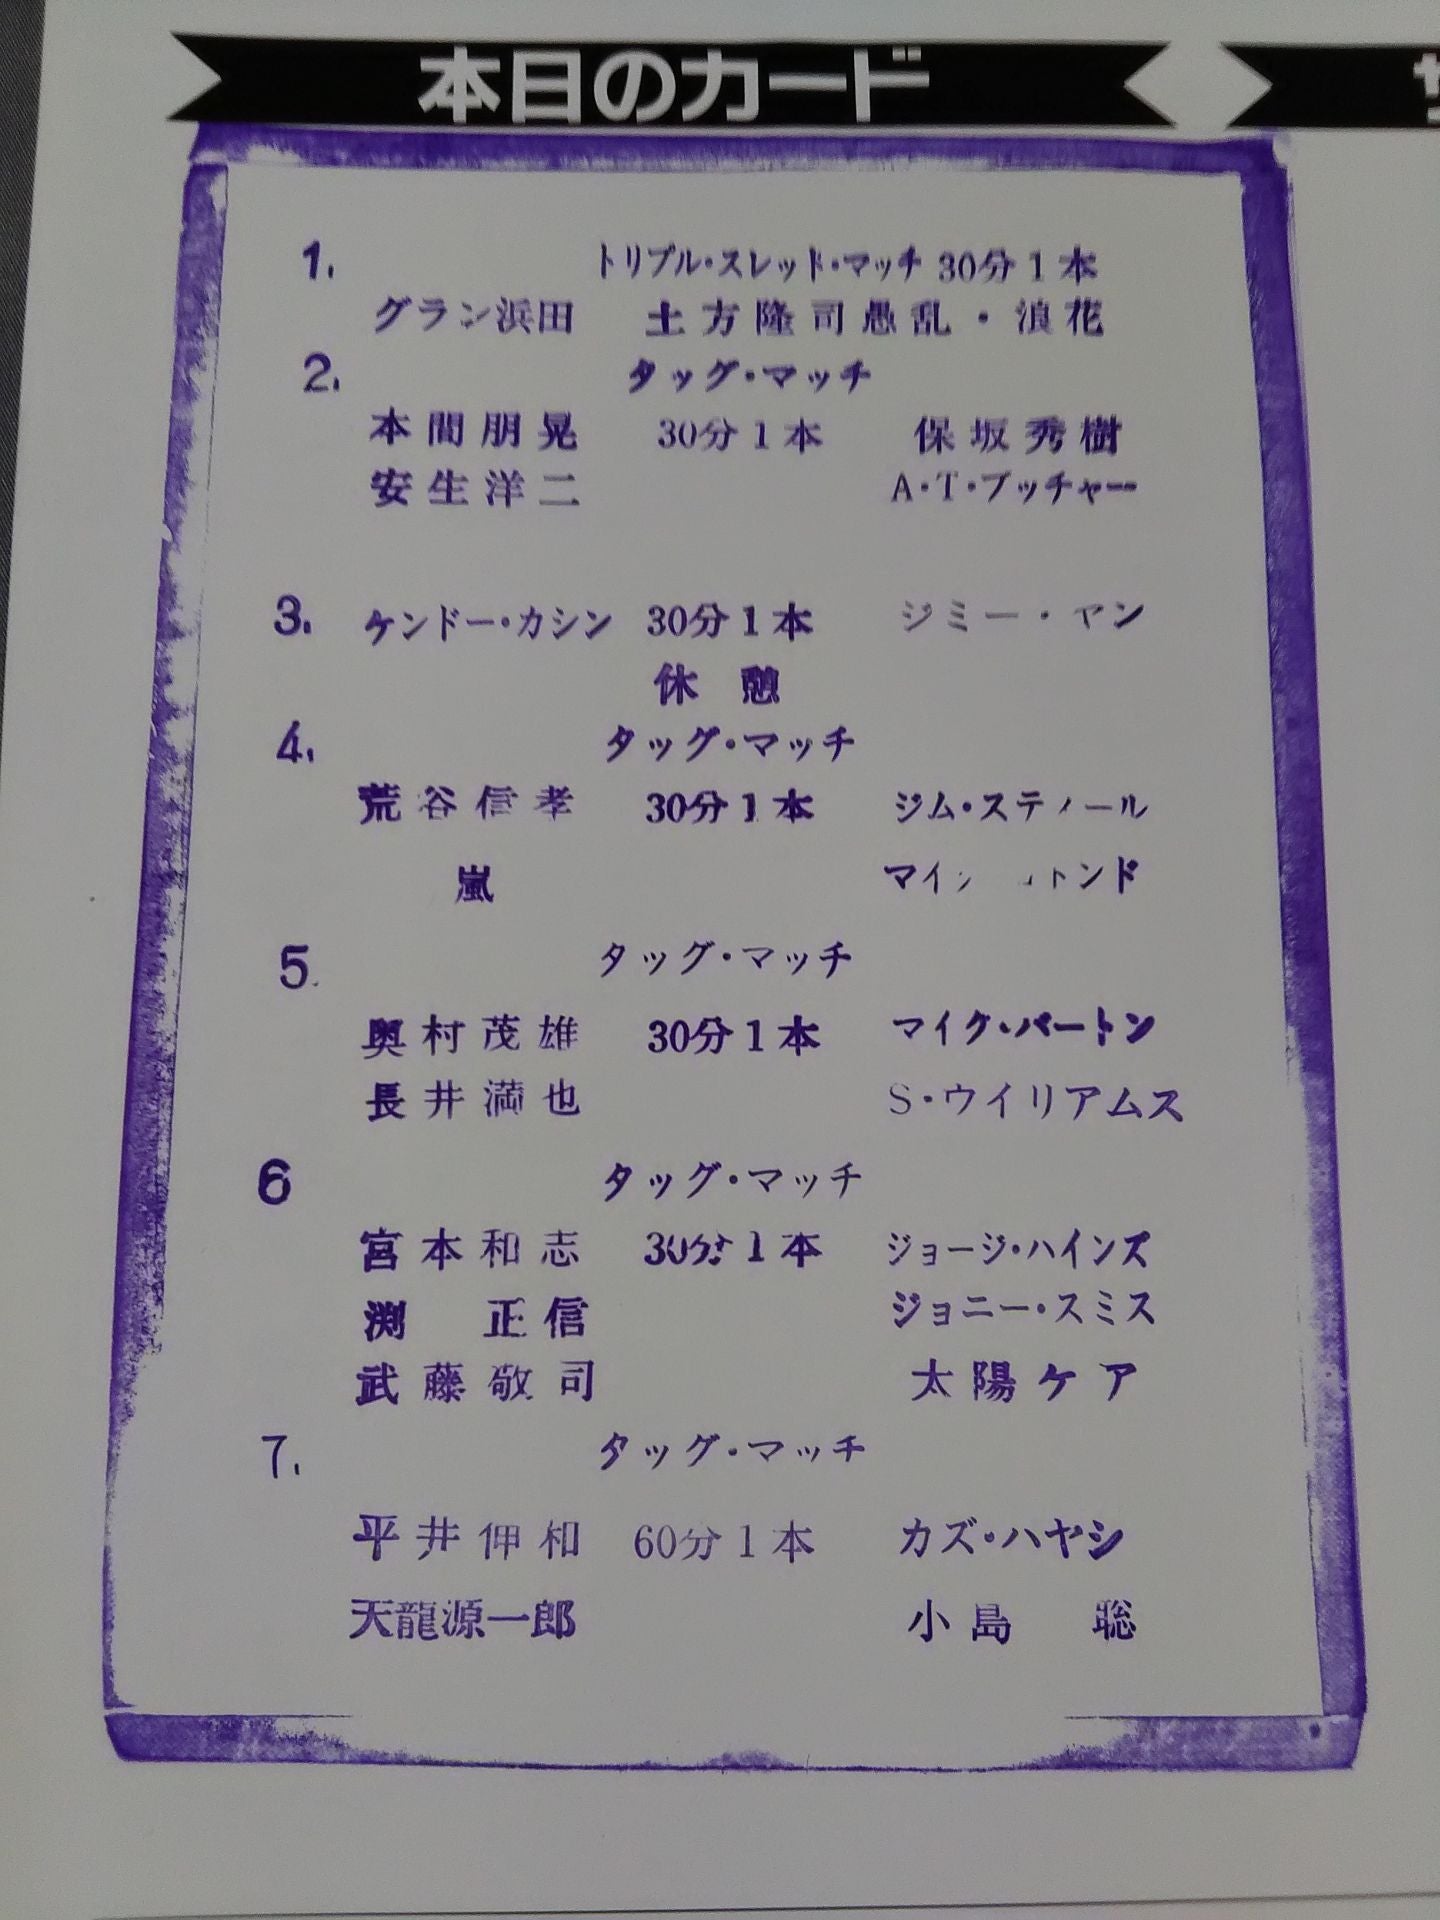 本日のカード
1.
トリプル・スレッド・マッチ 30分1本
グラン浜田 土方隆司愚乱・浪花
2. タッグ・マッチ
本間朋晃 30分1本 保坂秀樹
安生洋二 A・T・ブッチャー
3. ケンドー・カシン 30分1本 ジミー・ヤン
休憩
4. タッグ・マッチ
荒谷信孝 30分1本 ジム・スティール
嵐
5. タッグ・マッチ
奥村茂雄 30分1本 マイク・バートン
長井満也 S・ウイリアムス
6 タッグ・マッチ
宮本和志 30分1本 ジョージ・ハインズ
渕 正信 ジョニー・スミス
武藤敬司 太陽ケア
7. タッグ・マッチ
平井伸和 60分1本 カズ・ハヤシ
天龍源一郎 小島 聡